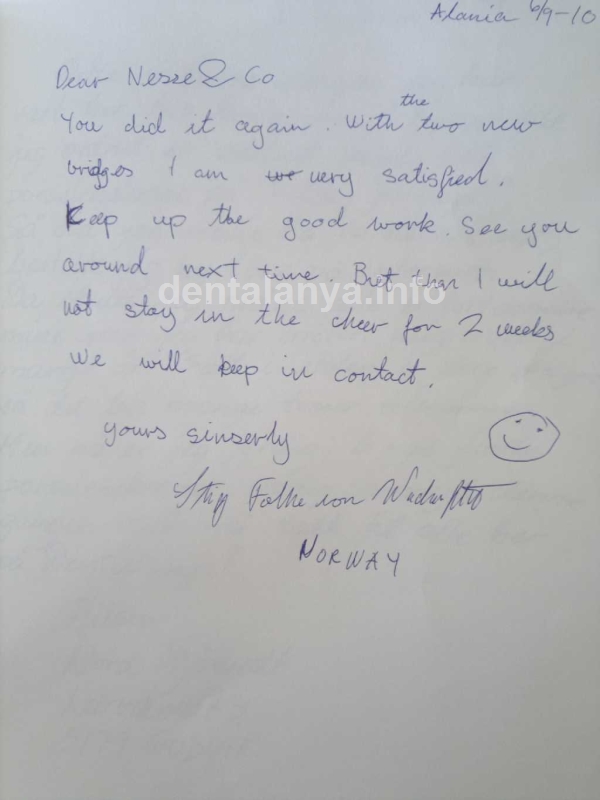 Alania 6/9-10
Dear Nesse & Co
You did it again. With the two new
bridges I am we very satisfied.
Keep up the good work. See you
around next time. But than I will
dentalanya.info
not stay in the cheer for 2 weeks
We will keep in contact.
yours sinserly
Stig Falke von
NORWAY